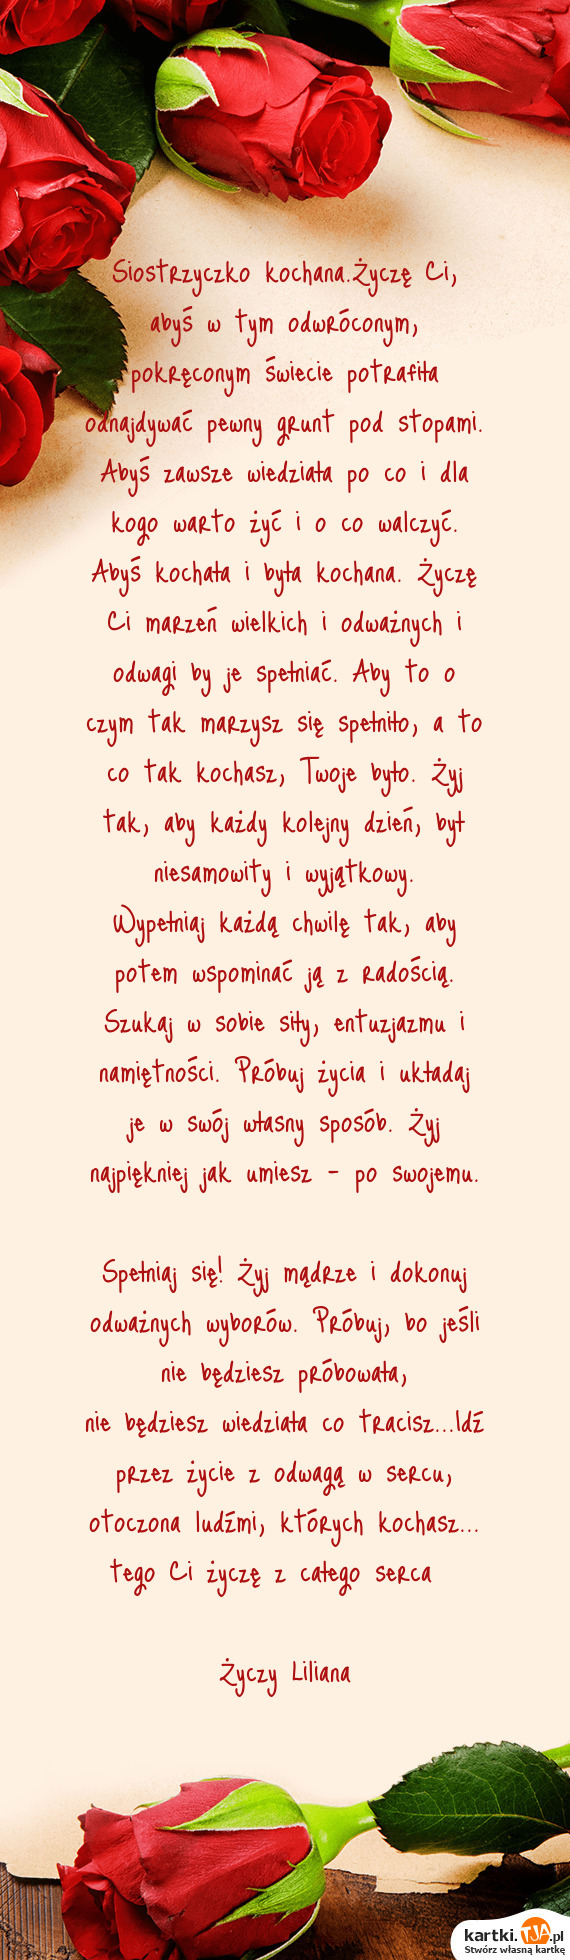 Siostrzyczko kochana.Życzę Ci,
abyś w tym odwróconym,
pokręconym świecie potrafiła
odnajdywać pewny grunt pod stopami.
Abyś zawsze wiedziała po co i dla
kogo warto żyć i o co walczyć.
Abyś kochała i była kochana. Życzę
Ci marzeń wielkich i odważnych i
odwagi by je spełniać. Aby to o
czym tak marzysz się spełniło, a to
co tak kochasz, Twoje było. Żyj
tak, aby każdy kolejny dzień, był
niesamowity i wyjątkowy.
Wypełniaj każdą chwilę tak, aby
potem wspominać ją z radością.
Szukaj w sobie siły, entuzjazmu i
namiętności. Próbuj życia i układaj
je w swój własny sposób. Żyj
najpiękniej jak umiesz - po swojemu.
Spełniaj się! Żyj mądrze i dokonuj
odważnych wyborów. Próbuj, bo jeśli
nie będziesz próbowała,
nie będziesz wiedziała co tracisz...Idź
przez życie z odwagą w sercu,
otoczona ludźmi, których kochasz...
tego Ci życzę z całego serca
Życzy Liliana
kartki.TJA.pl
Stwórz własną kartkę